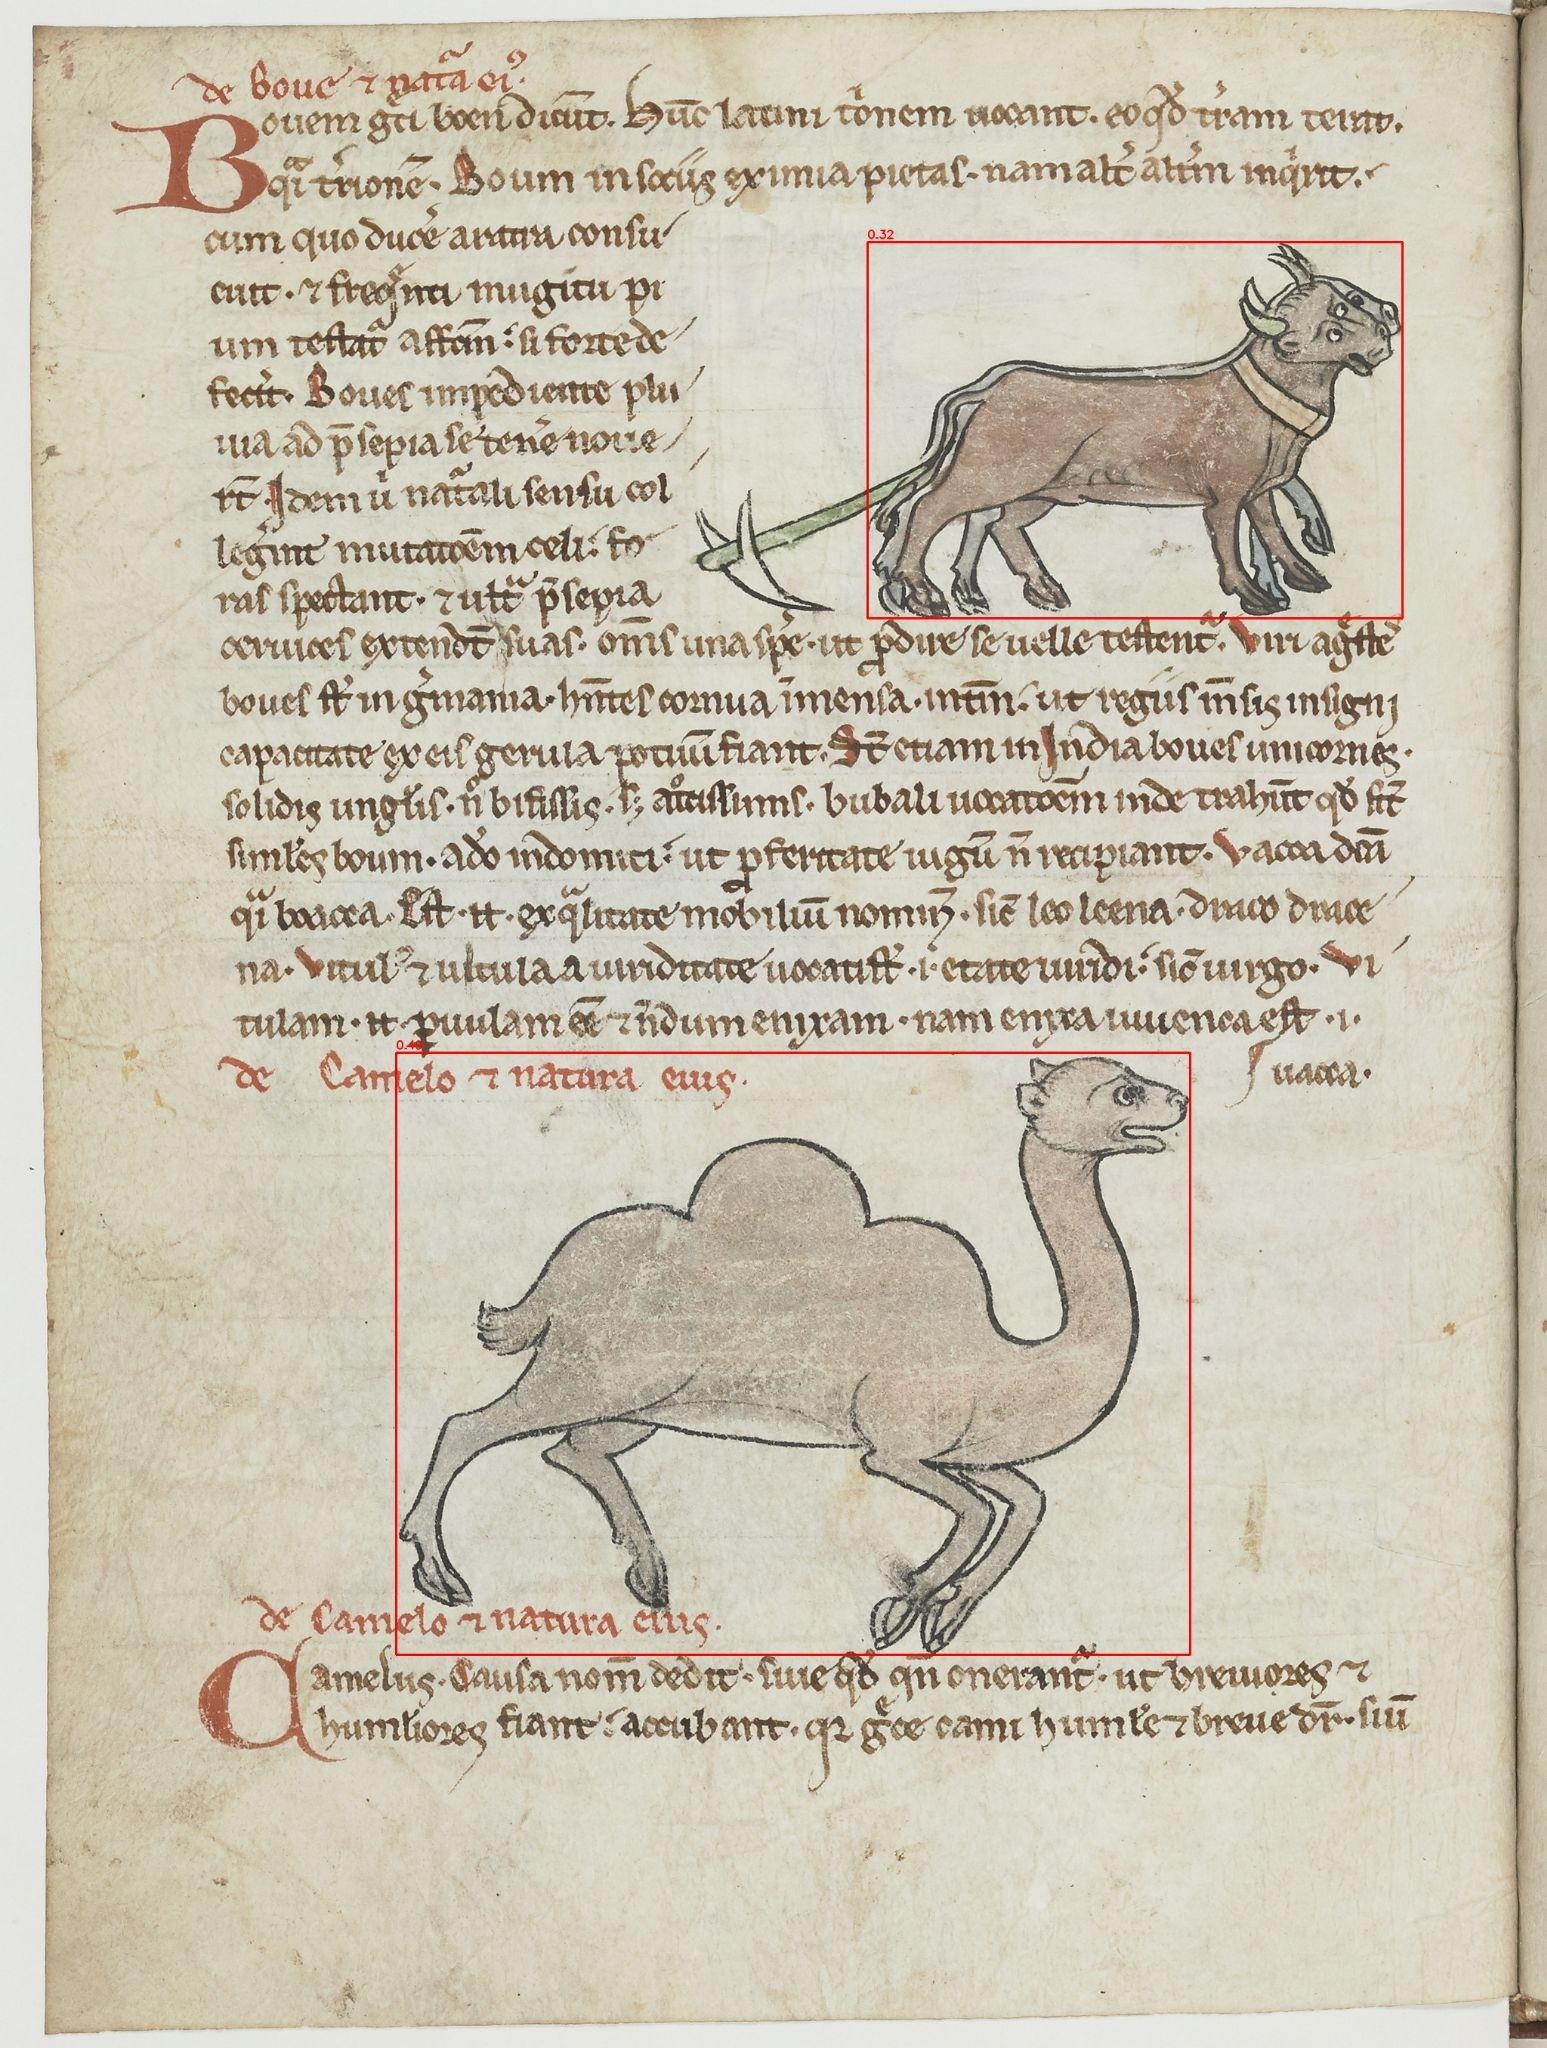 de boue ⁊ nat̾a ei⁹.
Bouem gͥci boen dicūt. Hūc latini tͥonem uocant. eo qd̓ tr̄am terat.
qͣi tͥrionē. Boum in sociis eximia pietas. nam alt̓ alt̓m inqͥrit.
cum quo ducē aratra consu
euit. ⁊ freqͣnti mugitu pi
um testat̾ affcm̄: si forte de
fecit̓. Boues impediente plu
uia ad p̄sepia se tenē noue
rt̄. Idem ū natͣali sensu col
legūnt mutatōem celi: fo
ras spectant. ⁊ ultͣ p̄sepia
ceruices extendt̄ suas. om̄s una spē. ut ꝓdire se uelle testent̾. Viri agͤste
boues st̄ in gͥmania. hn̄tes cornua īmensa. intm̄: ut regiis m̄sis insigni
capacitate ex eis gerula potuū fiant. St̄ etiam in India boues unicornes.
solidis ungl̓is. nͦ bifissis. sꝫ atͦcissimis. bubali uocatōem inde trahūt qd̓ st̄
simil̓es boum. adͦo indomiti: ut ꝓ feritate iugū n̄ recipiant. Vacca dc̄a
qͣi boacca. Est. n. ex qͣlitate mobiliū nominꝫ. sic̄ leo leena. draco drace
na. Vitul⁹ ⁊ uitula a uiriditate uocati st̄. i. etate uiridi: sic̄ uirgo. Vi
tulam. n. ꝑuulam eē ⁊ n̄dum enixam. nam enixa iuuenca est. i.
uacca.
de Camelo ⁊ natura eius.
de Camelo ⁊ natura eius.
Camelus. Causa nom̄ dedit. siue qd̓ qn̄ onerant̾. ut breuiores ⁊
humiliores fiant: accubant. qꝛ gͤce cami humil̓e ⁊ breue dr̄. siū